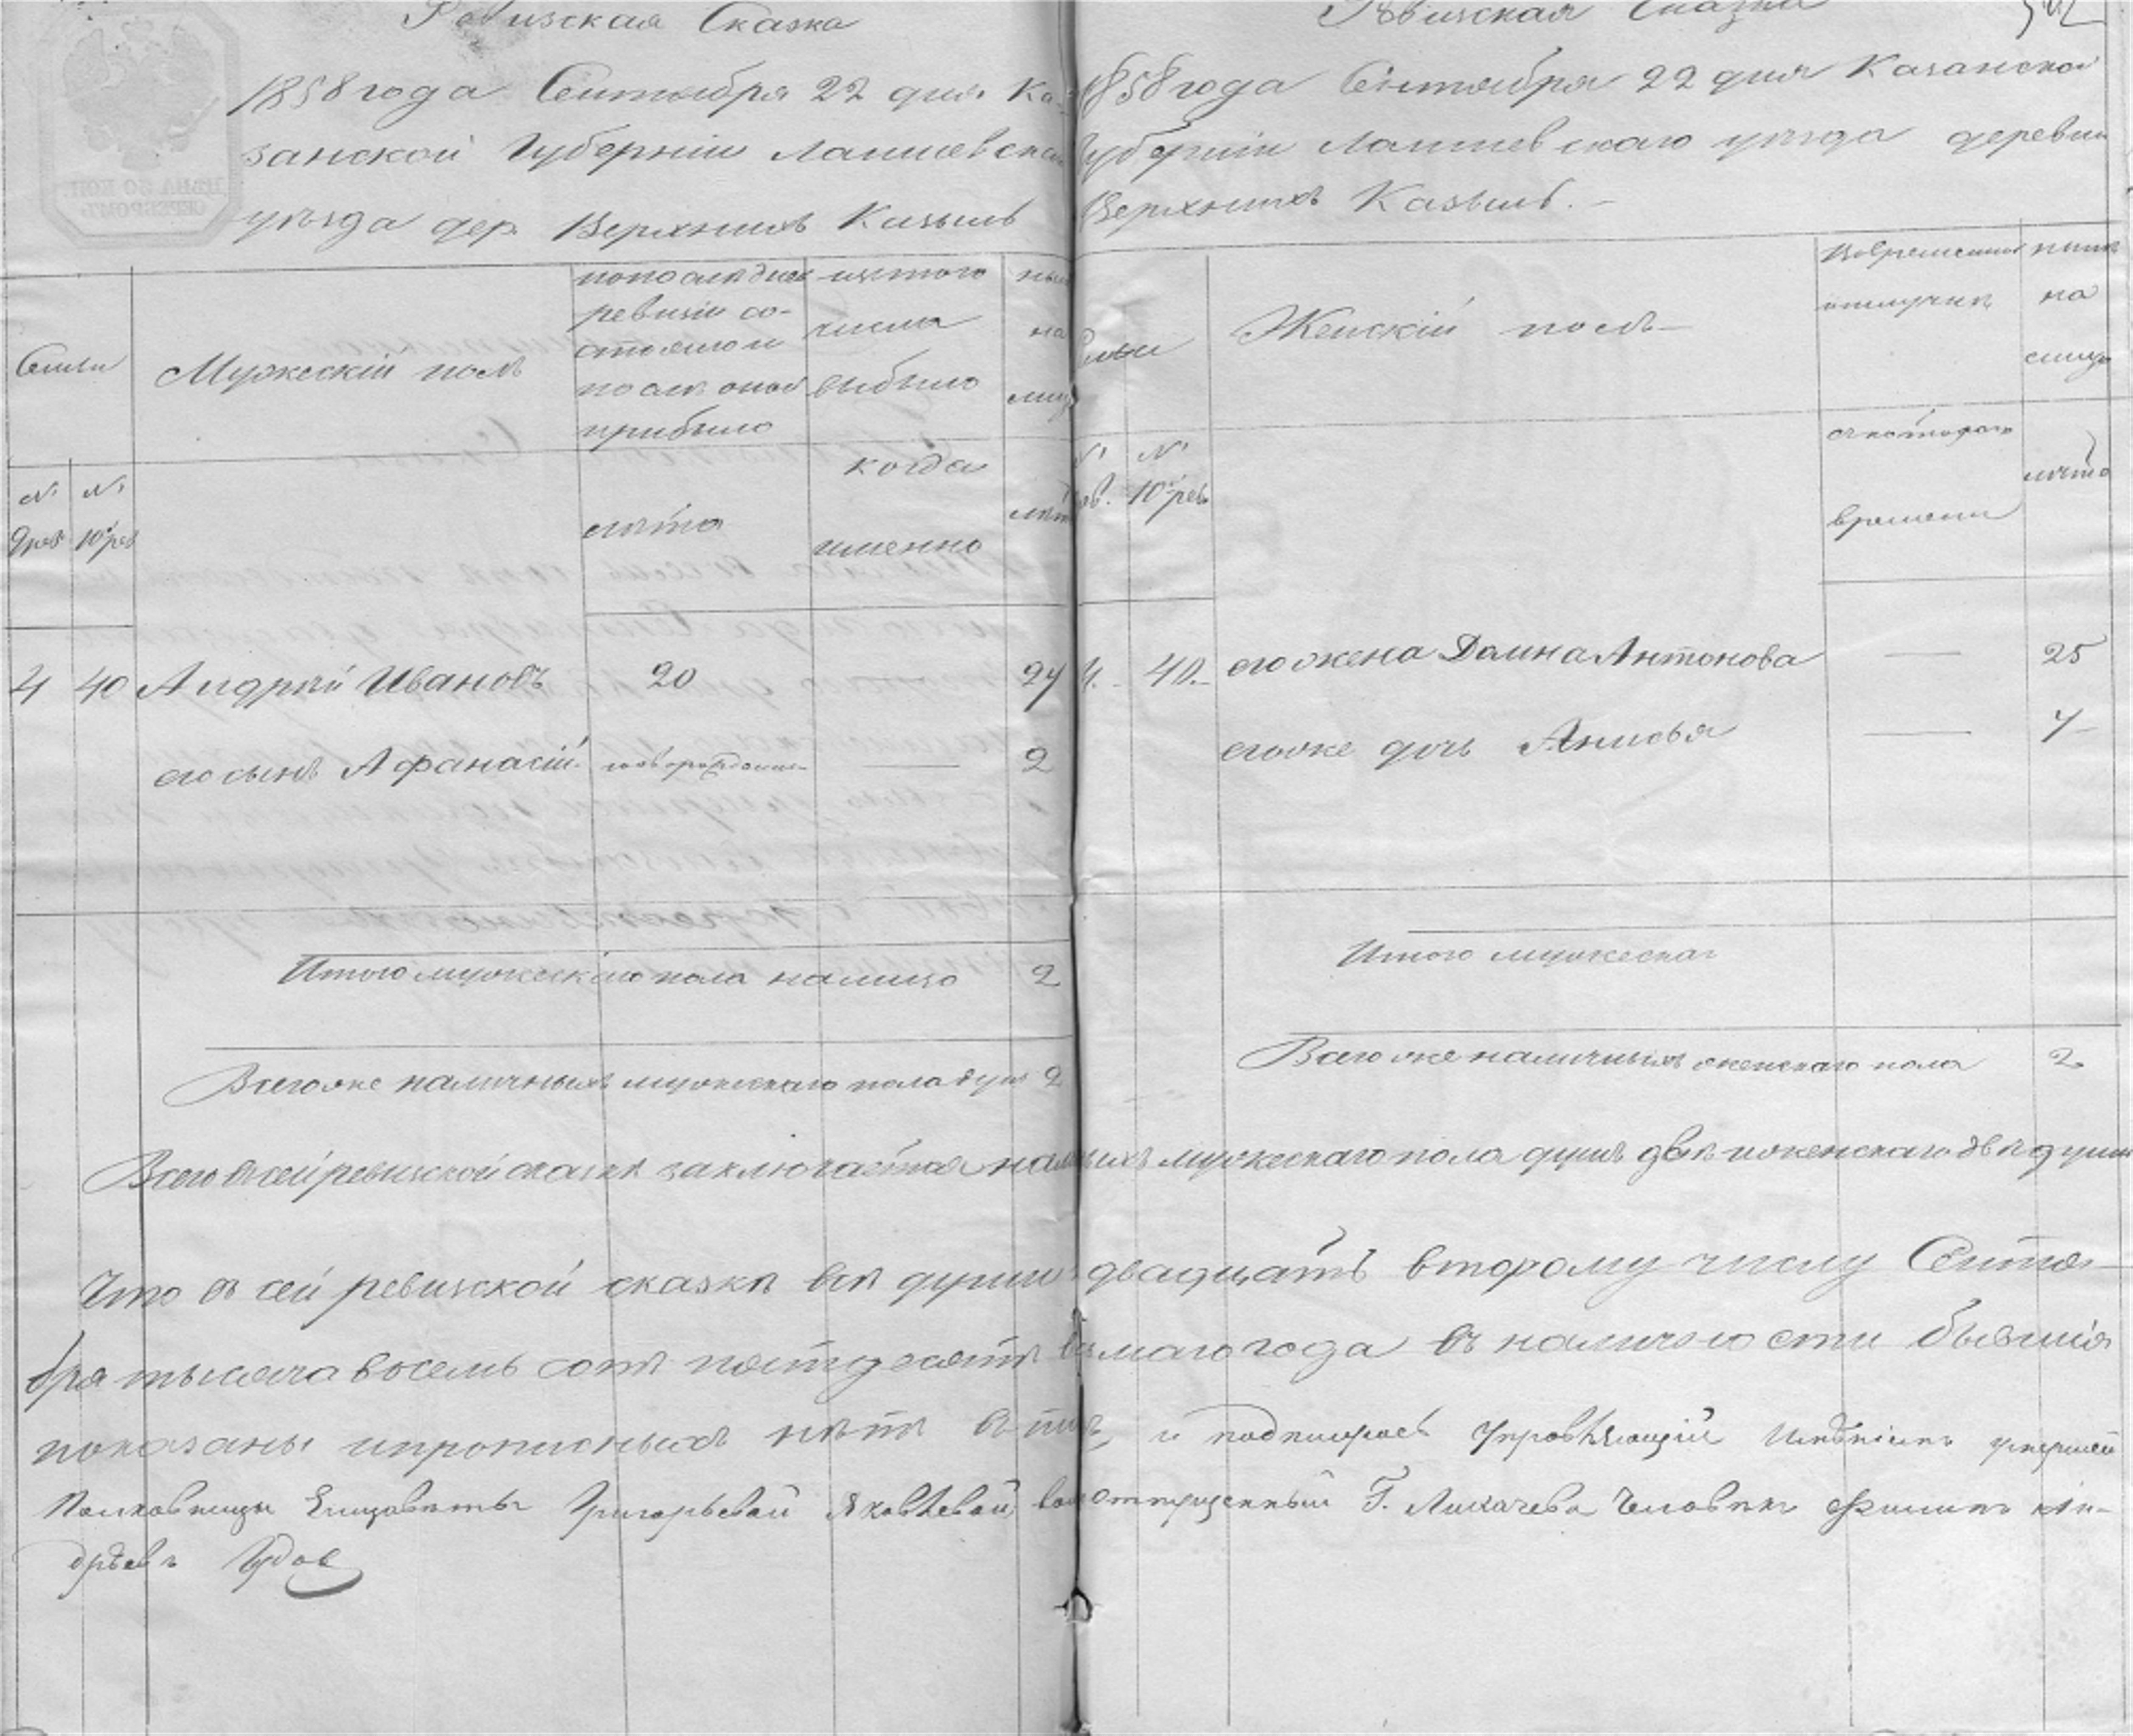 Ревизская Сказка
1858 года Сентября 22 дня Ка-
занской Губерніи Лаишевскаго
уѣзда дер. Верхнихъ Казыль
Семьи
Мужескій полъ
по последней
ревизіи со-
стояло и
после оной
прибыло
изъ того
числа
выбыло
ныне
на
лицо
№
9 рев
№
10 рев
лѣта
когда
именно
лѣта
4 40 Андрей Ивановъ 20 27
его сынъ Афанасій новорожденн — 2
Итого мужескаго пола налицо 2
Всего же наличныхъ мужескаго пола душъ 2
Ревизская Сказка
1858 года Сентября 22 дня Казанской
Губерніи Лаишевскаго уѣзда деревни
Верхнихъ Казыль.
Семьи
Женскій полъ
Во временной
отлучке
ныне
на
лицо
№
рев.
№
10 рев
съ котораго
времени
лѣта
4. 40. его жена Домна Антонова — 25
его же дочь Анисья — 7
Итого мужескаг
Всего же наличныхъ женскаго пола 2
Всего въ сей ревизской сказкѣ заключается наличныхъ мужескаго пола душъ двѣ и женскаго двѣ души
Что въ сей ревизской сказкѣ всѣ души двадцать второму числу Сентя-
бря тысяча восемь сотъ пятьдесятъ восьмаго года въ наличности бывшія
показаны и прописныхъ нѣтъ въ томъ и подписуюсь Управляющій Имѣніемъ умершей
Полковницы Елизаветы Григорьевой Яковлевой, вольноотпущенный Г. Лихачева Человѣкъ Филипъ Ан-
дрѣевъ